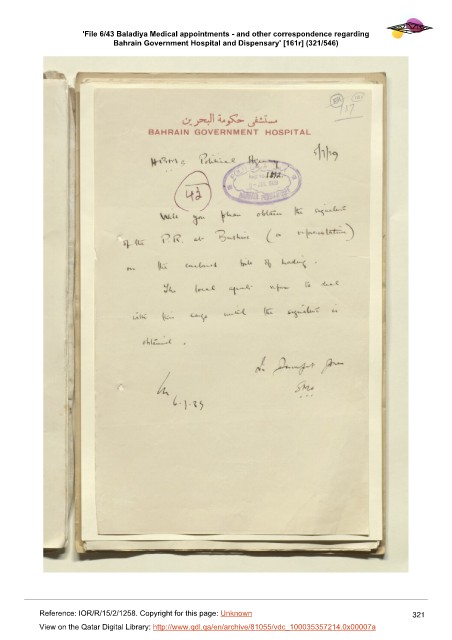 'File 6/43 Baladiya Medical appointments - and other correspondence regarding
Bahrain Government Hospital and Dispensary' [161r] (321/546)
مستشفى حكومة البحرين
BAHRAIN GOVERNMENT HOSPITAL
Political Agency
43
Will you please obtain the signature
of the P.R. at Bushire (or representative)
on the enclosed bill of lading.
The local agent refuses to deal
with this cargo until the signature is
obtained.
SMO
6-7-39
Reference: IOR/R/15/2/1258. Copyright for this page: Unknown
View on the Qatar Digital Library: http://www.qdl.qa/en/archive/81055/vdc_100035357214.0x00007a
321